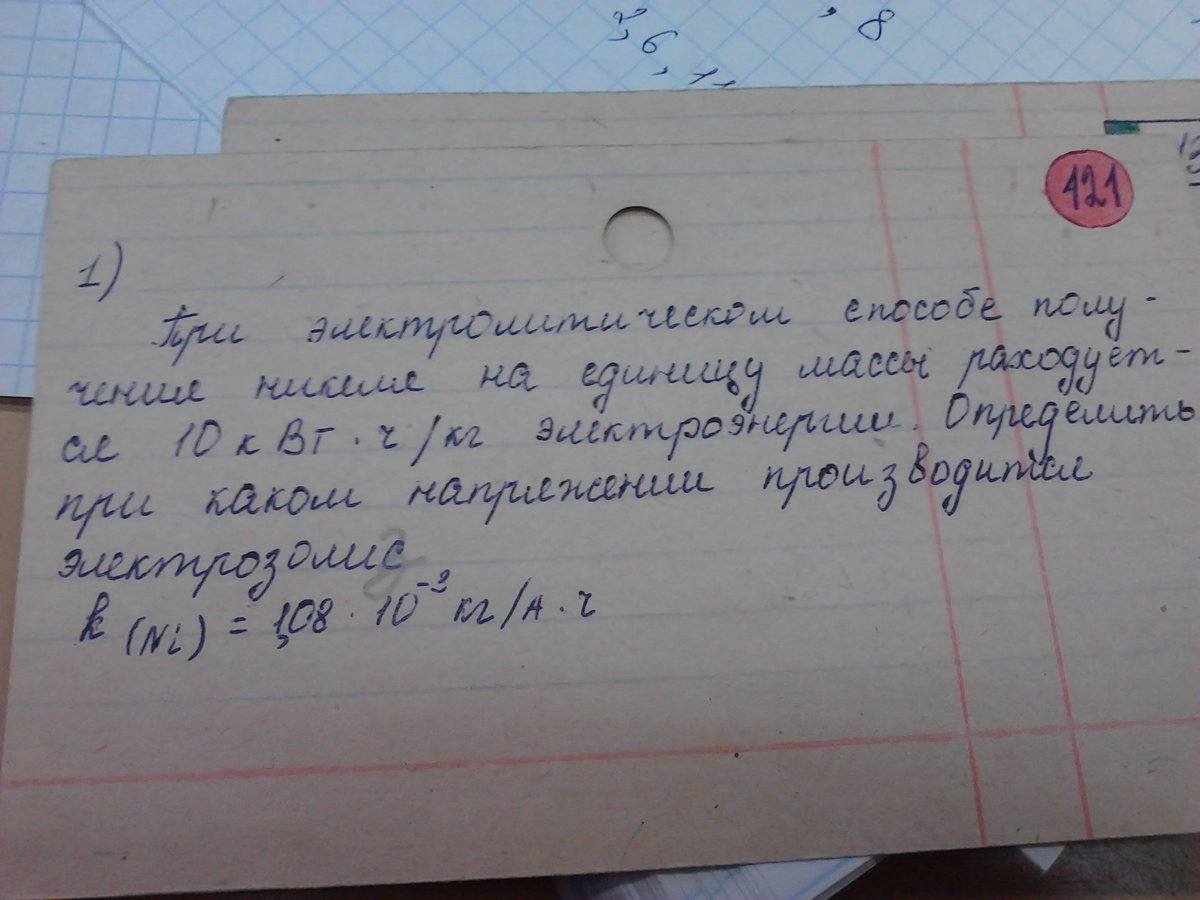 2, 6, 11
, 8
121
1)
При электролитическом способе полу-
чения никеля на единицу массы раходует-
ся 10 кВт·ч/кг электроэнергии. Определить
при каком напряжении производится
электрозолис
k (Ni) = 1,08 · 10⁻³ кг/А·ч